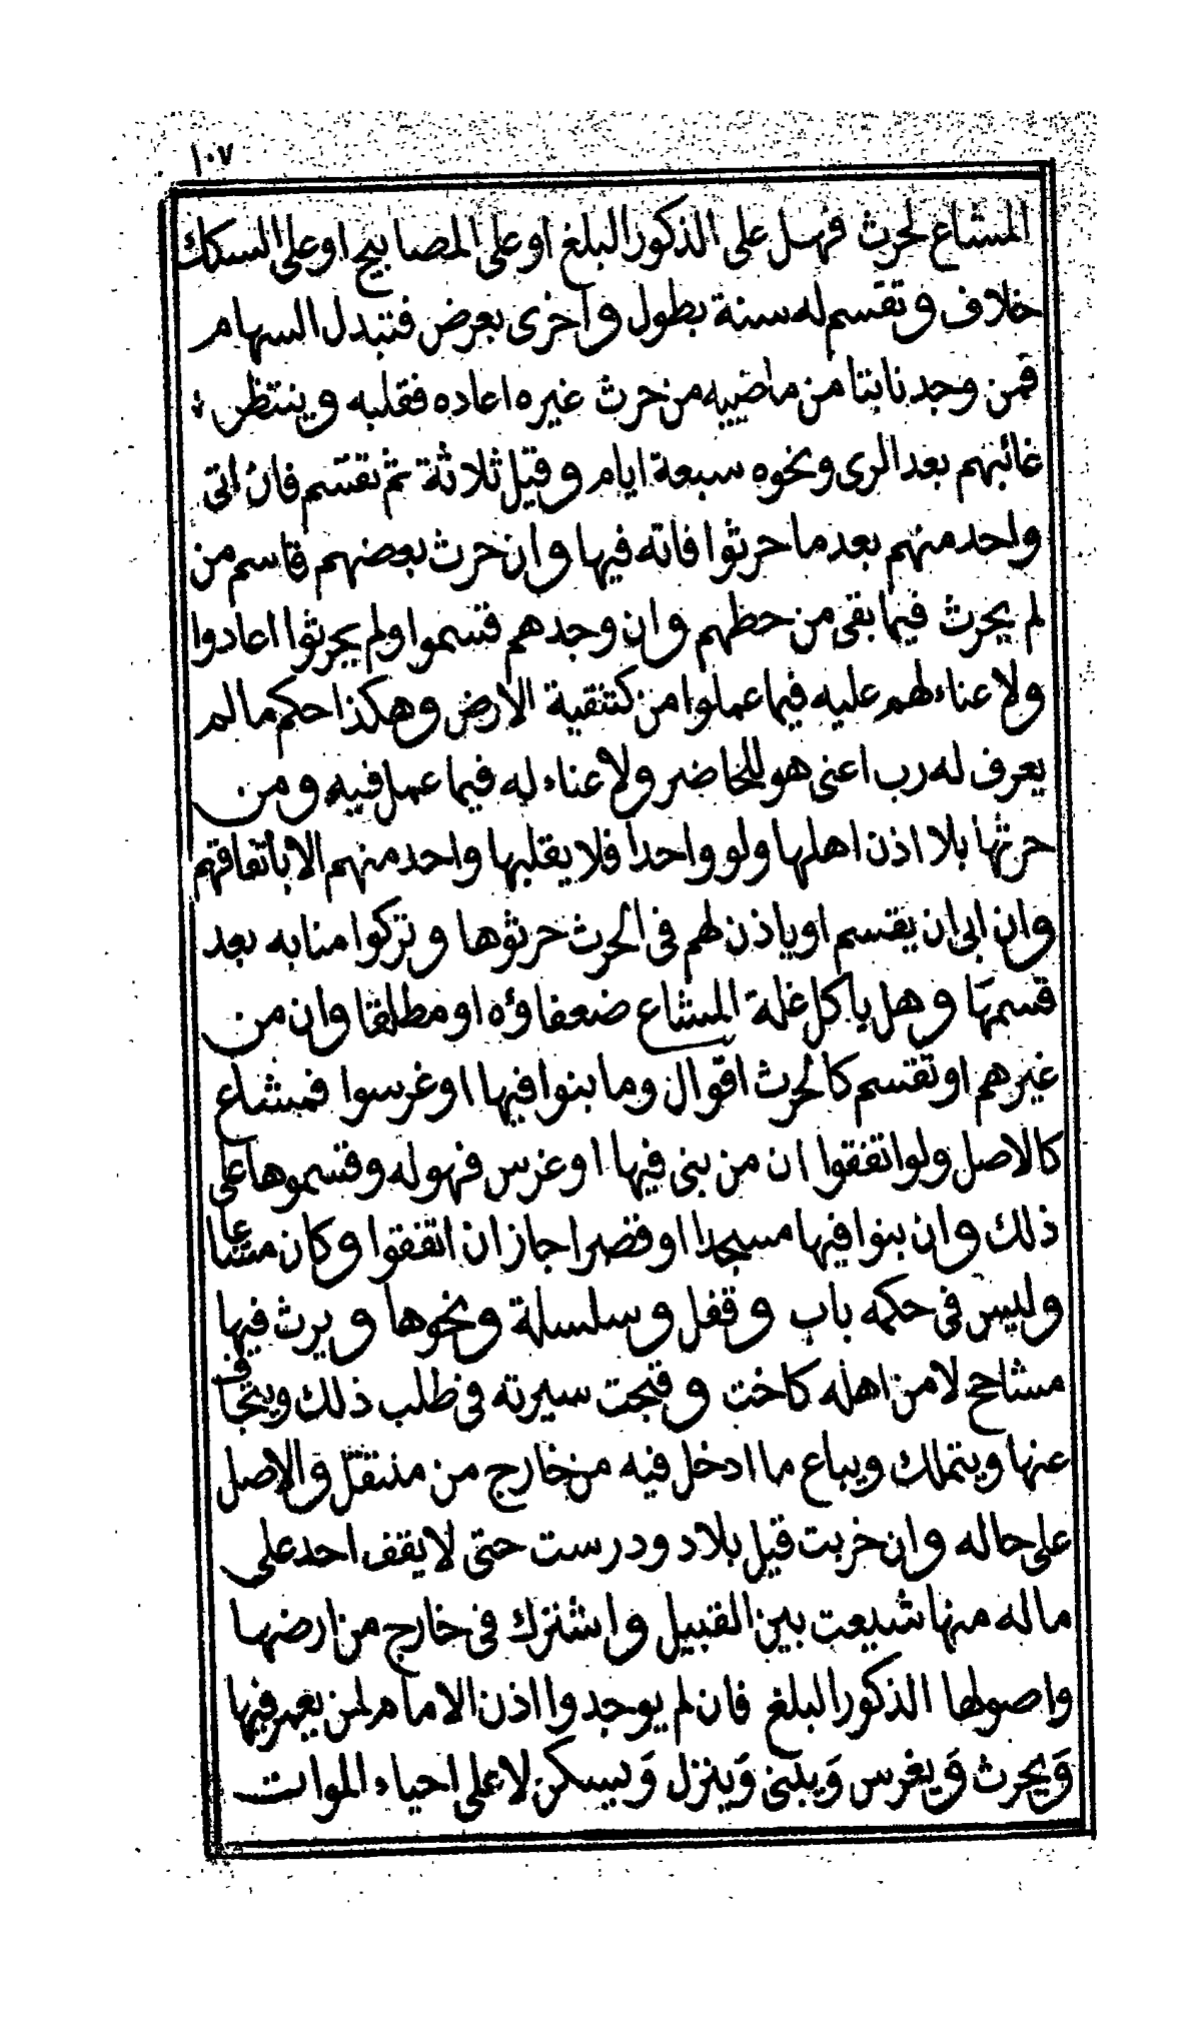 ١٠٧
المشاع لحرث فهل على الذكور البلغ او على المصابيح او على السكك
خلاف وتقسم له سنة بطول واخرى بعرض فتبدل السهام
فمن وجد نابتا من ماضييه من حرث غيره اعاده فقلبه وينتظر
غائبهم بعد الرى ونحوه سبعة ايام وقيل ثلاثة ثم تقسم فان اتى
واحد منهم بعد ما حرثوا فاته فيها وان حرث بعضهم قاسم من
لم يحرث فيما بقى من حظهم وان وجدهم قسموا ولم يحرثوا اعادوا
ولا عناء لهم عليه فيما عملوا من كتنقية الارض وهكذا حكم ما لم
يعرف له رب اعنى هو للحاضر ولا عناء له فيما عمل فيه ومن
حرثها بلا اذن اهلها ولو واحدا فلا يقلبها واحد منهم الا باتفاقهم
وان ابى ان يقسم او ياذن لهم فى الحرث حرثوها وتركوا منابه بعد
قسمها وهل ياكل غلة المشاع ضعفاؤه او مطلقا وان من
غيرهم او تقسم كالحرث اقوال وما بنوا فيها او غرسوا فمشاع
كالاصل ولو اتفقوا ان من بنى فيها او غرس فهو له وقسموها على
ذلك وان بنوا فيها مسجدا او قصرا جاز ان اتفقوا وكان مشاعا
وليس فى حكمه باب وقفل وسلسلة ونحوها ويرث فيها
مشاحح لا من اهله كاخت وقبحت سيرته فى طلب ذلك ويتجافى
عنها ويتملك ويباع ما ادخل فيه من خارج من منتقل والاصل
على حاله وان خربت قيل بلاد ودرست حتى لا يقف احد على
ماله منها شيعت بين القبيل واشترك فى خارج من ارضها
واصولها الذكور البلغ فان لم يوجدوا اذن الامام لمن يعمر فيها
ويحرث ويغرس ويبنى وينزل ويسكن لا على احياء الموات